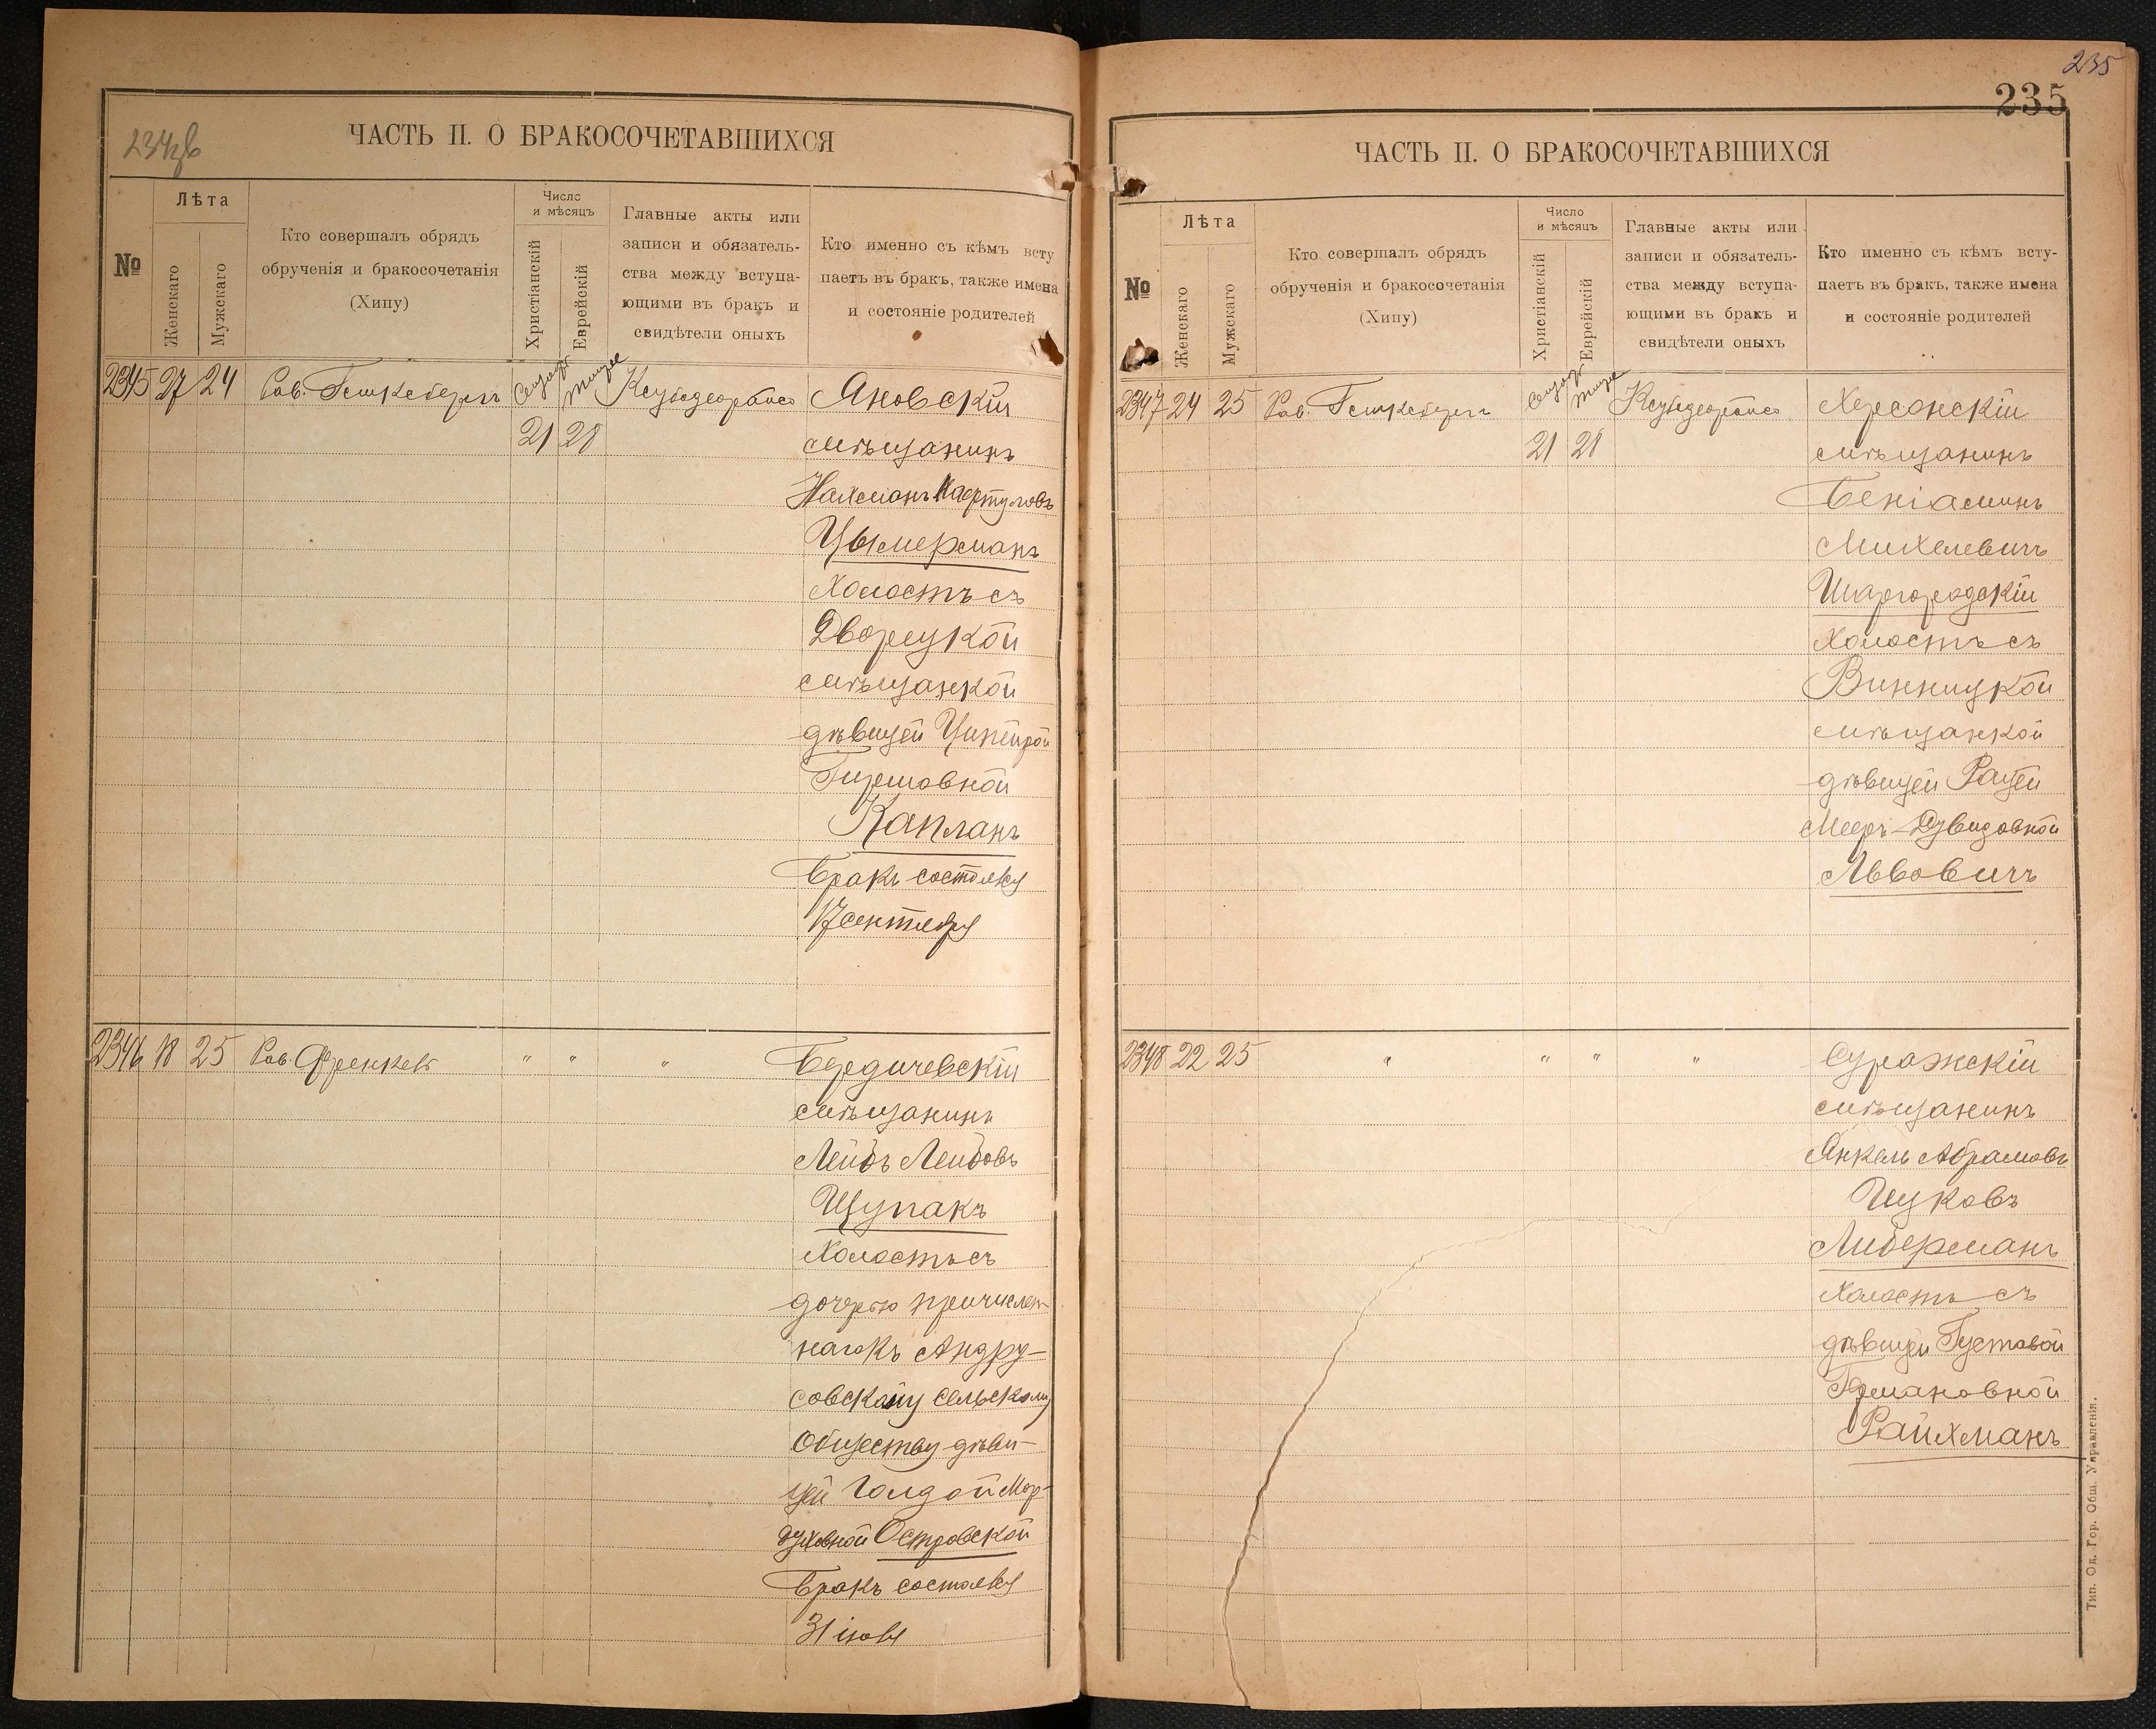 234об
ЧАСТЬ II. О БРАКОСОЧЕТАВШИХСЯ
№
Лѣта
Женскаго
Мужскаго
Кто совершалъ обрядъ
обрученія и бракосочетанія
(Хипу)
Число
и мѣсяцъ
Христіанскій
Еврейскій
Главные акты или
записи и обязатель-
ства между вступа-
ющими въ бракъ и
свидѣтели оныхъ
Кто именно съ кѣмъ всту
паетъ въ бракъ, также имена
и состояніе родителей
2345 27 24 Рав. Тишре Яновскій
21 28 мѣщанинъ
Нахманъ
Цымерманъ
Холостъ съ
Дворецкой
мѣщанкой
дѣвицей Ципейрой
Гиршовной
Капланъ
Бракъ состоялся
17 сентября
2346 18 25 Рав. Френкель " " " Бердичевскій
мѣщанинъ
Лейбъ Лейбовъ
Щупакъ
Холостъ съ
дочерью причислен-
наго къ Андру-
совскому сельскому
Обществу дѣви-
цей Голдой Мор-
духовной Островской
Бракъ состоялся
31 іюля
235
235
ЧАСТЬ II. О БРАКОСОЧЕТАВШИХСЯ
№
Лѣта
Женскаго
Мужскаго
Кто совершалъ обрядъ
обрученія и бракосочетанія
(Хипу)
Число
и мѣсяцъ
Христіанскій
Еврейскій
Главные акты или
записи и обязатель-
ства между вступа-
ющими въ бракъ и
свидѣтели оныхъ
Кто именно съ кѣмъ всту-
паетъ въ бракъ, также имена
и состояніе родителей
2347 24 25 Рав. Тишре Херсонскій
21 28 мѣщанинъ
Беніаминъ
Михелевичъ
Шаргородскій
Холостъ съ
Винницкой
мѣщанкой
дѣвицей Рацей
Мееръ-Дувидовной
Львовичъ
2348 22 25 " " " " Суражскій
мѣщанинъ
Янкель Абрамовъ
Ицковъ
Либерманъ
Холостъ съ
дѣвицей Густавой
Германовной
Райхманъ
Тип. Од. Гор. Общ. Управленія.